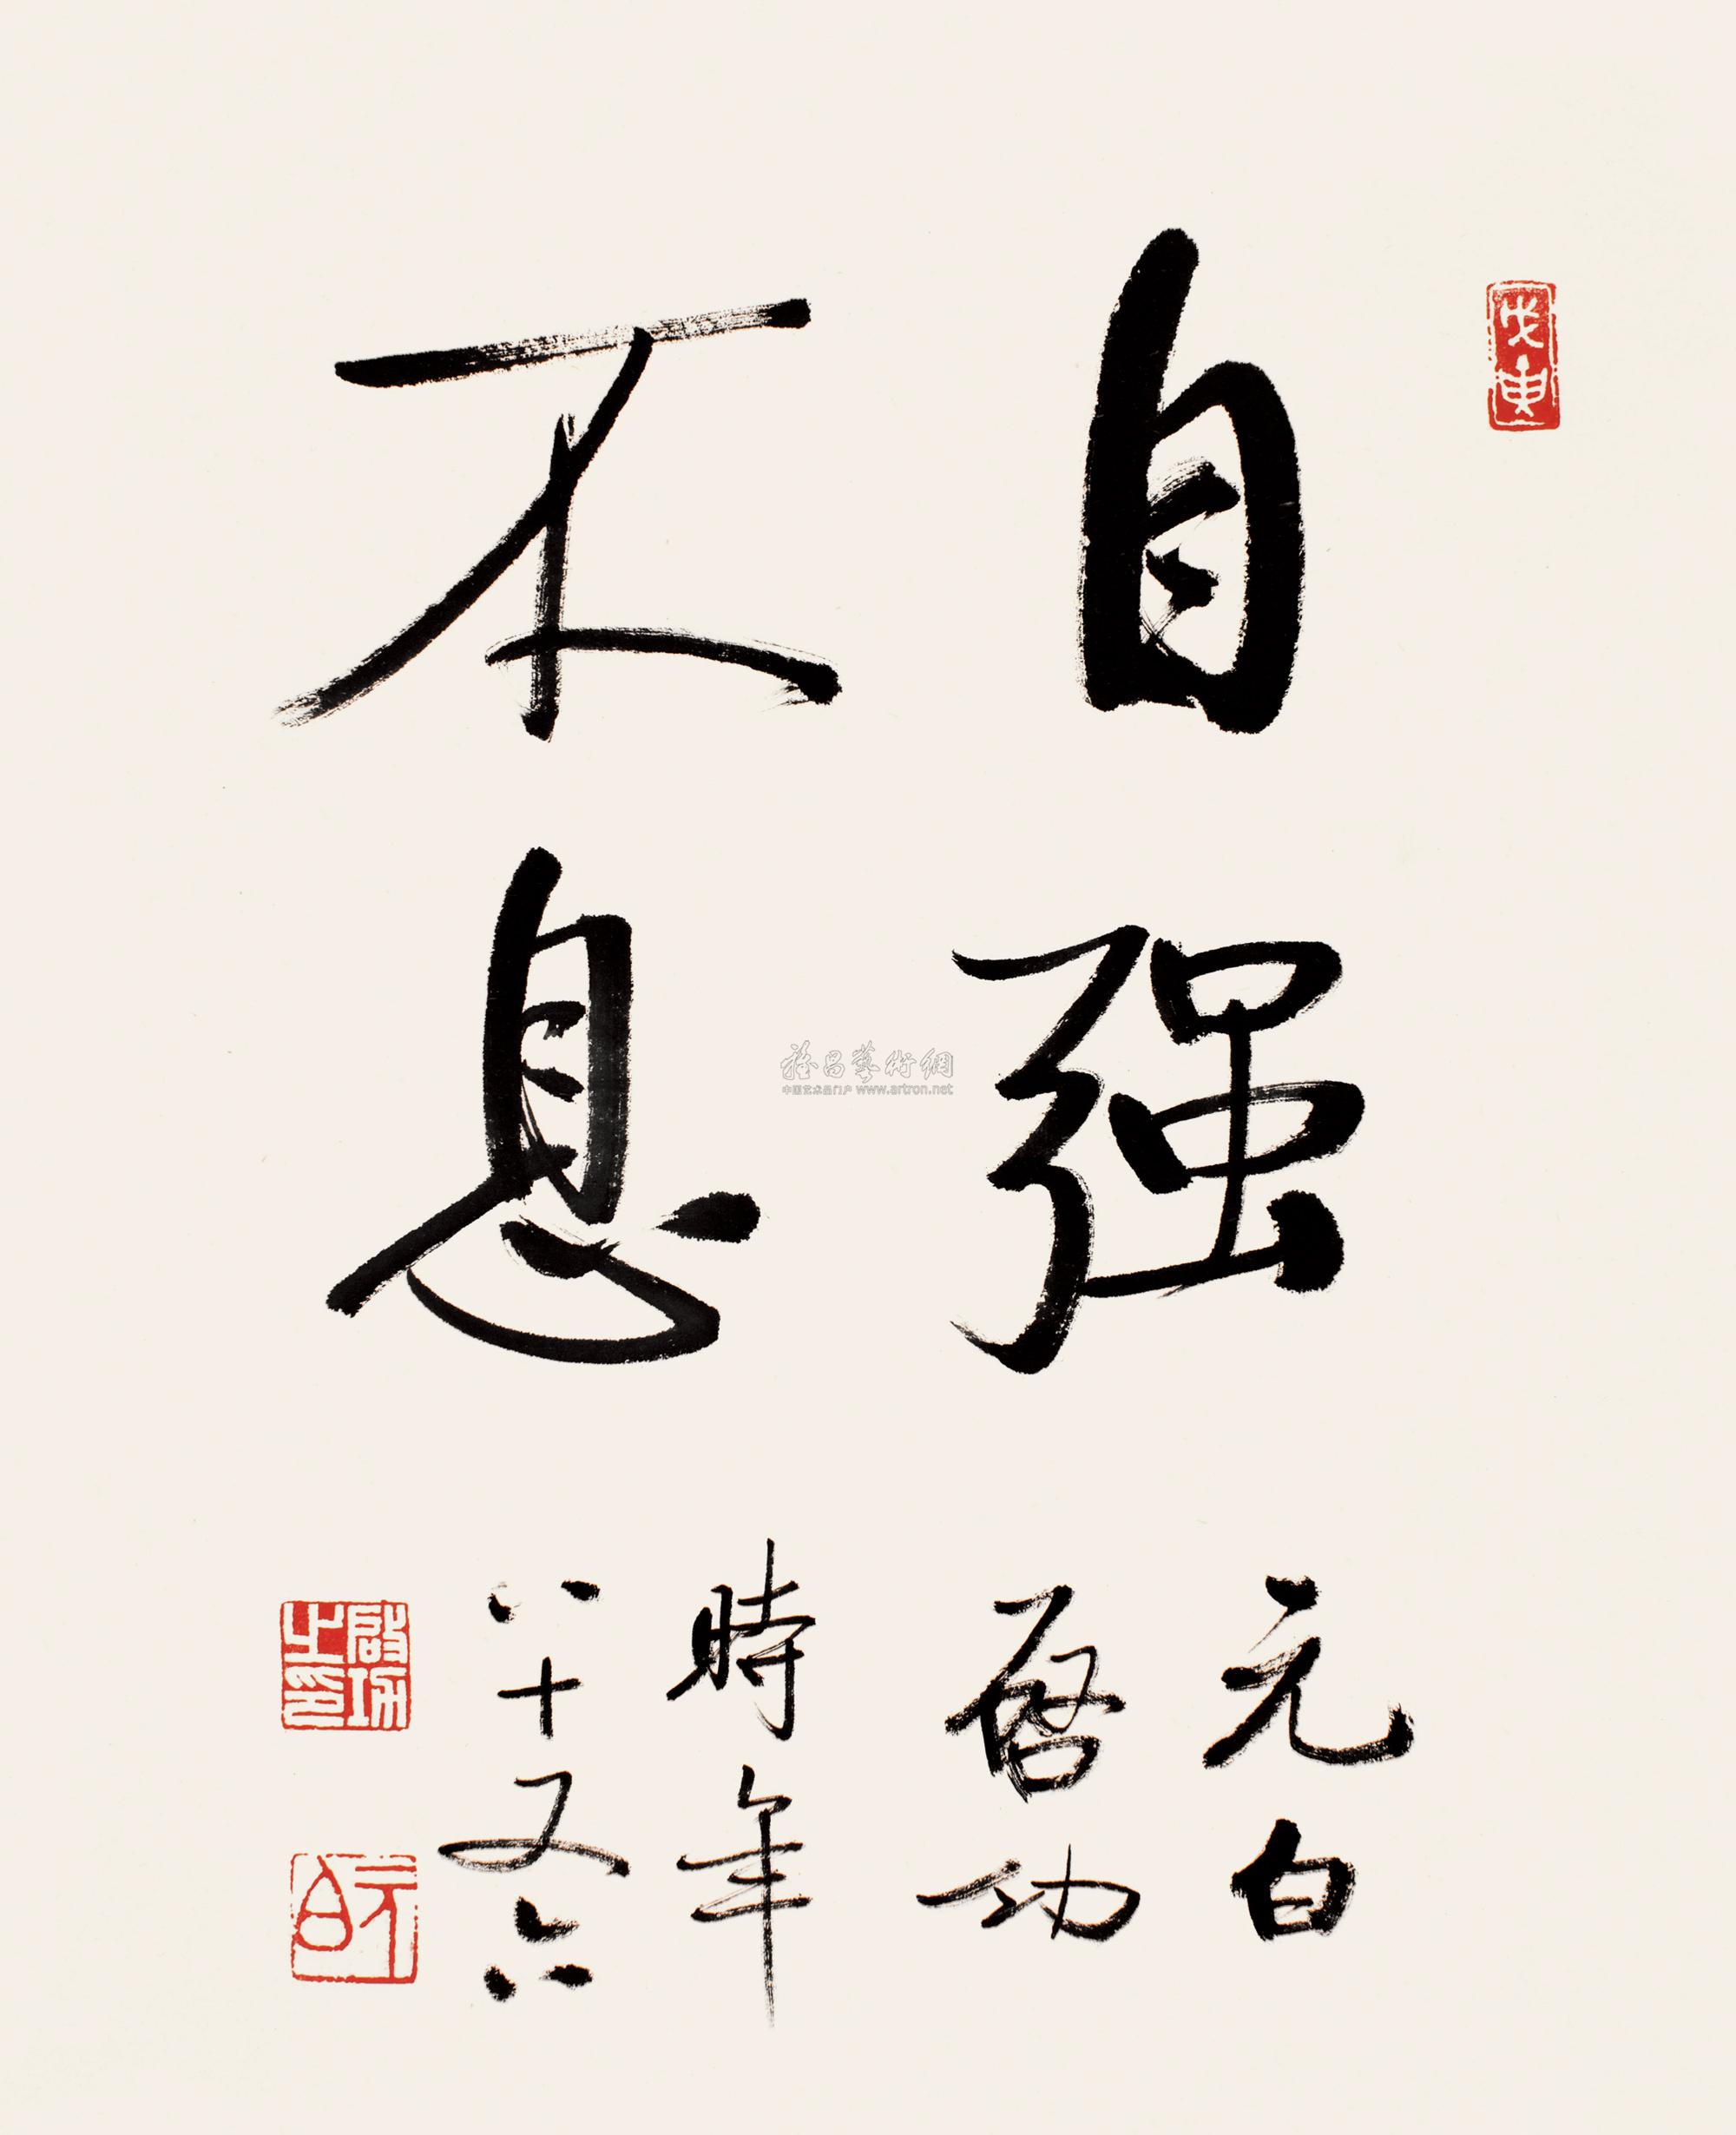 戊寅
自强
不息
元白
啓功
時年
八十又六
啟功之印
元白
雅昌藝術網
中国艺术品门户 www.artron.net